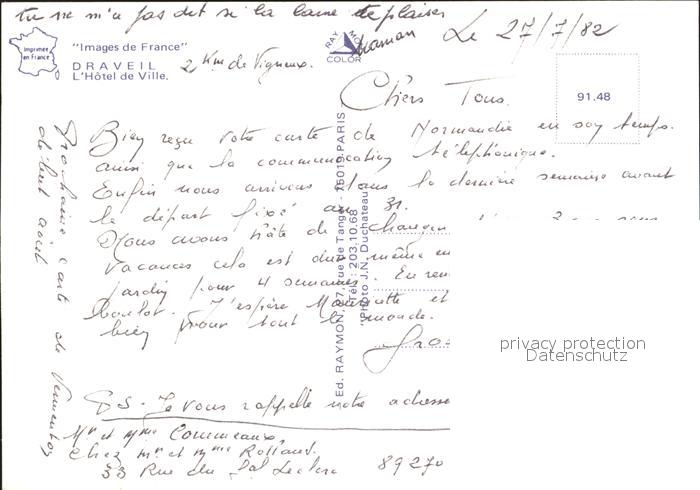 tu ne m'a pas dit si la laine te plaisai
maman
Le 27/7/82
Imprimée
en France
"Images de France"
DRAVEIL
L'Hôtel de Ville.
2 Km de Vigneux.
RAY MO
COLOR
91.48
Chers Tous.
Bien reçu votre carte de Normandie en son temps.
ainsi que la communication téléphonique.
Enfin nous arrivons dans la dernière semaine avant
le départ fixé au 31.
Nous avons hâte de changer
vacances cela est dur même en
jardin pour 4 semaines. En
boulot. J'espère et
bien pour tout le monde.
Gros
PS. Je vous rappelle notre adresse
Mr et Mme Commeaux
Chez Mr et Mme Rolland.
33 Rue du Gal Leclerc 89270
Prochaine carte de Vermenton
début août
Ed. RAYMON, 27, rue de Tanger - 75019 PARIS
Tél : 203.10.68
"Photo J.N. Duchateau"
privacy protection
Datenschutz